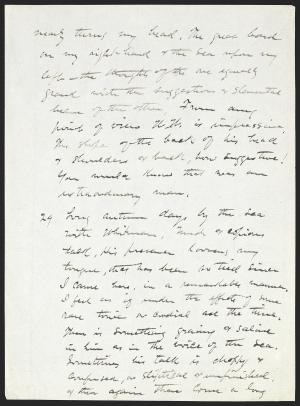 nearly turns my head. The great bard
on my right hand & the sea upon my
left — the thoughts of the one equally
grand with the suggestions & elemental
of the other. From any
point of view W.W. is impressive.
The slope of the back of his head
& shoulders & back, how suggestive!
You would know that was an
extraordinary man.
29 Long autumn days by the sea
with Whitman. Much & copious
talk. His presence loosens my
tongue, that has been so tied since
I came here, in a remarkable manner.
I feel as if under the effects of some
rare tonic or cordial all the time.
There is something grainy & saline
in him as in the voice of the sea.
Sometimes his talk is choppy &
confused, or elliptical & unfinished,
& then again there comes a long